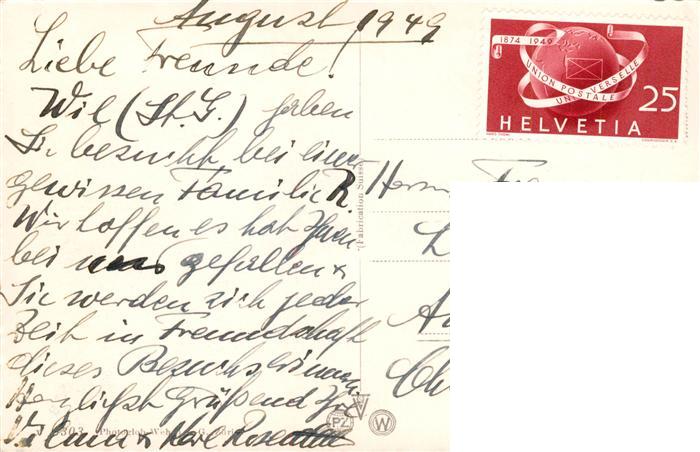 August 1949
Liebe Freunde!
Wil (St. G.) haben
Sie besucht bei einer
gewissen Familie R
Wir hoffen es hat Ihnen
bei uns gefallen &
Sie werden sich jeder
Zeit in Freundschaft
dieses Besuchs erinnern
Herzlichst Grüßend Ihre
Wilma & Karl
Herrn
(Fabrication Suisse)
1874 1949
UNION POSTALE UNIVERSELLE
25
HELVETIA
PZ
W